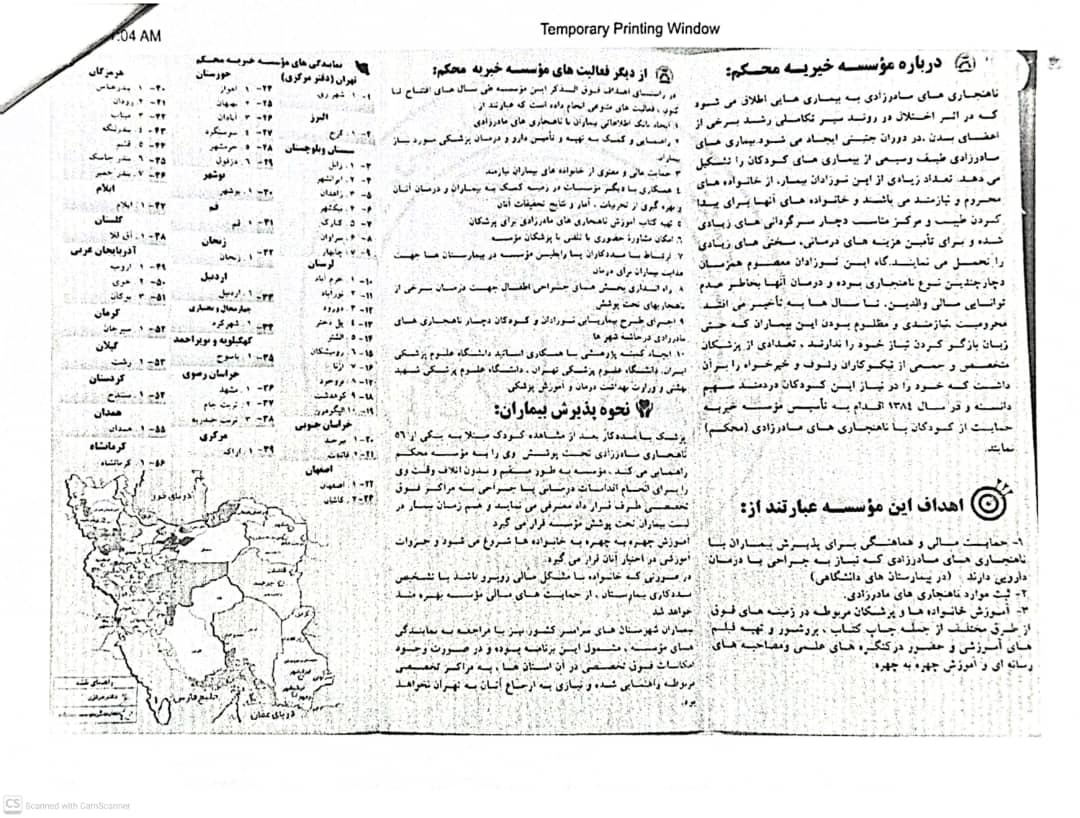 :04 AM
Temporary Printing Window
درباره مؤسسه خیریه محکم:
ناهنجاری های مادرزادی به بیماری هایی اطلاق می شود
که در اثر اختلال در روند سیر تکاملی رشد برخی از
اعضای بدن ،در دوران جنینی ایجاد می شود.بیماری های
مادرزادی طیف وسیعی از بیماری های کودکان را تشکیل
می دهد. تعداد زیادی از این نوزادان بیمار، از خانواده های
محروم و نیازمند می باشند و خانواده های آنها برای پیدا
کردن طبیب و مرکز مناسب دچار سرگردانی های زیادی
شده و برای تأمین هزینه های درمانی، سختی های زیادی
را تحمل می نمایند.گاه این نوزادان معصوم همزمان
دچارچندین نوع ناهنجاری بوده و درمان آنها بخاطر عدم
توانایی مالی والدین، تا سال ها به تأخیر می افتد.
محرومیت ،نیازمندی و مظلوم بودن این بیماران که حتی
زبان بازگو کردن نیاز خود را ندارند ، تعدادی از پزشکان
متخصص و جمعی از نیکوکاران رئوف و خیرخواه را بر آن
داشت که خود را در نیاز این کودکان دردمند سهیم
دانسته و در سال ١٣٨٤ اقدام به تأسیس مؤسسه خیریه
حمایت از کودکان با ناهنجاری های مادرزادی (محکم)
نمایند.
اهداف این مؤسسه عبارتند از:
١- حمایت مالی و هماهنگی برای پذیرش بیماران با
ناهنجاری های مادرزادی که نیاز به جراحی یا درمان
دارویی دارند . (در بیمارستان های دانشگاهی)
٢- ثبت موارد ناهنجاری های مادرزادی.
٣- آموزش خانواده ها و پزشکان مربوطه در زمینه های فوق
از طرق مختلف از جمله چاپ کتاب ، بروشور و تهیه فیلم
های آموزشی و حضور در کنگره های علمی ومصاحبه های
رسانه ای و آموزش چهره به چهره.
از دیگر فعالیت های مؤسسه خیریه محکم:
در راستای اهداف فوق الذکر این مؤسسه طی سال های افتتاح تا
کنون ، فعالیت های متنوعی انجام داده است که عبارتند از :
١ ایجاد بانک اطلاعاتی بیماران با ناهنجاری های مادرزادی
٢ راهنمایی و کمک به تهیه و تأمین دارو و درمان پزشکی مورد نیاز
بیماران
٣ حمایت مالی و معنوی از خانواده های بیماران نیازمند
٤ همکاری با دیگر مؤسسات در زمینه کمک به بیماران و درمان آنان
و بهره گیری از تجربیات ، آمار و نتایج تحقیقات آنان
٥ تهیه کتاب آموزش ناهنجاری های مادرزادی برای پزشکان
٦ امکان مشاوره حضوری یا تلفنی با پزشکان مؤسسه
٧ ارتباط با مددکاران یا رابطین مؤسسه در بیمارستان ها جهت
هدایت بیماران برای درمان
٨ راه اندازی بخش های جراحی اطفال جهت درمان برخی از
ناهنجاریهای تحت پوشش
٩ اجرای طرح بیماریابی نوزادان و کودکان دچار ناهنجاری های
مادرزادی در حاشیه شهر ها
١٠ ایجاد کمیته پژوهشی با همکاری اساتید دانشگاه علوم پزشکی
ایران، دانشگاه علوم پزشکی تهران ، دانشگاه علوم پزشکی شهید
بهشتی و وزارت بهداشت درمان و آموزش پزشکی
نحوه پذیرش بیماران:
پزشک یا مددکار بعد از مشاهده کودک مبتلا به یکی از ٥٦
ناهنجاری مادرزادی تحت پوشش وی را به مؤسسه محکم
راهنمایی می کند . مؤسسه به طور مستقیم و بدون اتلاف وقت وی
را برای انجام اقدامات درمانی یا جراحی به مراکز فوق
تخصصی طرف قرار داد معرفی می نماید و هم زمان بیمار در
لیست بیماران تحت پوشش مؤسسه قرار می گیرد
آموزش چهره به چهره به خانواده ها شروع می شود و جزوات
آموزشی در اختیار آنان قرار می گیرد.
در صورتی که خانواده با مشکل مالی روبرو باشد با تشخیص
مددکاری بیمارستان ، از حمایت های مالی مؤسسه بهره مند
خواهد شد
بیماران شهرستان های سراسر کشور نیز با مراجعه به نمایندگی
های مؤسسه ، مشمول این برنامه بوده و در صورت وجود
امکانات فوق تخصصی در آن استان ها ، به مراکز تخصصی
مربوطه راهنمایی شده و نیازی به ارجاع آنان به تهران نخواهد
بود.
نمایندگی های مؤسسه خیریه محکم
تهران (دفتر مرکزی)
١- ١ شهر ری
البرز
٢- ١ کرج
سیستان وبلوچستان
٣- ١ زابل
٤- ٢ ایرانشهر
٥- ٣ زاهدان
٦- ٤ نیکشهر
٧- ٥ کنارک
٨- ٦ سراوان
٩- ٧ چابهار
لرستان
١٠- ١ خرم آباد
١١- ٢ نورآباد
١٢- ٣ دورود
١٣- ٤ پل دختر
١٤- ٥ الشتر
١٥- ٦ رومشکان
١٦- ٧ ازنا
١٧- ٨ بروجرد
١٨- ٩ کوهدشت
١٩- ١٠ الیگودرز
خراسان جنوبی
٢٠- ١ بیرجند
٢١- ٢ قائنات
اصفهان
٢٢- ١ اصفهان
٢٣- ٢ کاشان
خوزستان
٢٤- ١ اهواز
٢٥- ٢ بهبهان
٢٦- ٣ آبادان
٢٧- ٤ سوسنگرد
٢٨- ٥ خرمشهر
٢٩- ٦ دزفول
بوشهر
٣٠- ١ بوشهر
قم
٣١- ١ قم
زنجان
٣٢- ١ زنجان
اردبیل
٣٣- ١ اردبیل
چهارمحال و بختیاری
٣٤- ١ شهرکرد
کهگیلویه و بویراحمد
٣٥- ١ یاسوج
خراسان رضوی
٣٦- ١ مشهد
٣٧- ٢ تربت جام
٣٨- ٣ تربت حیدریه
مرکزی
٣٩- ١ اراک
هرمزگان
٤٠- ١ بندرعباس
٤١- ٢ رودان
٤٢- ٣ میناب
٤٣- ٤ بندرلنگه
٤٤- ٥ قشم
٤٥- ٦ بندر جاسک
٤٦- ٧ بندر خمیر
ایلام
٤٧- ١ ایلام
گلستان
٤٨- ١ آق قلا
آذربایجان غربی
٤٩- ١ ارومیه
٥٠- ٢ خوی
٥١- ٣ بوکان
کرمان
٥٢- ١ سیرجان
گیلان
٥٣- ١ رشت
کردستان
٥٤- ١ سنندج
همدان
٥٥- ١ همدان
کرمانشاه
٥٦- ١ کرمانشاه
دریای خزر
خلیج فارس
دریای عمان
راهنمای نقشه
دفتر مرکزی
CS Scanned with CamScanner